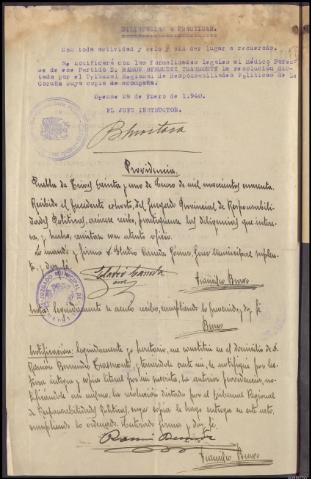 DILIGENCIAS A PRACTICAR.
Con toda actividad y celo y sin dar lugar a recuerdo.
Se notificará con las formalidades legales al Médico
de ese Partido D. RAMON BERMUDEZ la resolución dic-
tada por el Tribunal Regional de Responsabilidades Políticas de La
Coruña cuya copia se acompaña.
Orense 29 de Enero de 1.940.
EL JUEZ INSTRUCTOR.
Providencia.
Puebla de Trives treinta y uno de Enero de mil novecientos cuarenta.
Recibido el precedente exhorto, del Juzgado Provincial de Responsabili-
dades Políticas, acúsese recibo, practíquense las diligencias que intere-
sa, y hecho, remítase con atento oficio.
Lo mando y firmo D. Eladio Juez Municipal suplen-
te, y doy fe.
Nota: Seguidamente se acusa recibo, cumpliendo lo provenido, doy fé
Notificación: Seguidamente yo Secretario, me constituí en el domicilio de D.
Ramón Bermúdez y teniéndole ante mí, le notifiqué por lec-
tura íntegra y copia literal por mi suscrita, la anterior providencia, no-
tificándole así mismo, la resolución dictada por el Tribunal Regional
de Responsabilidades Políticas, cuya copia le hago entrega en este acto,
cumpliendo lo ordenado. Enterado firma, y doy fe.